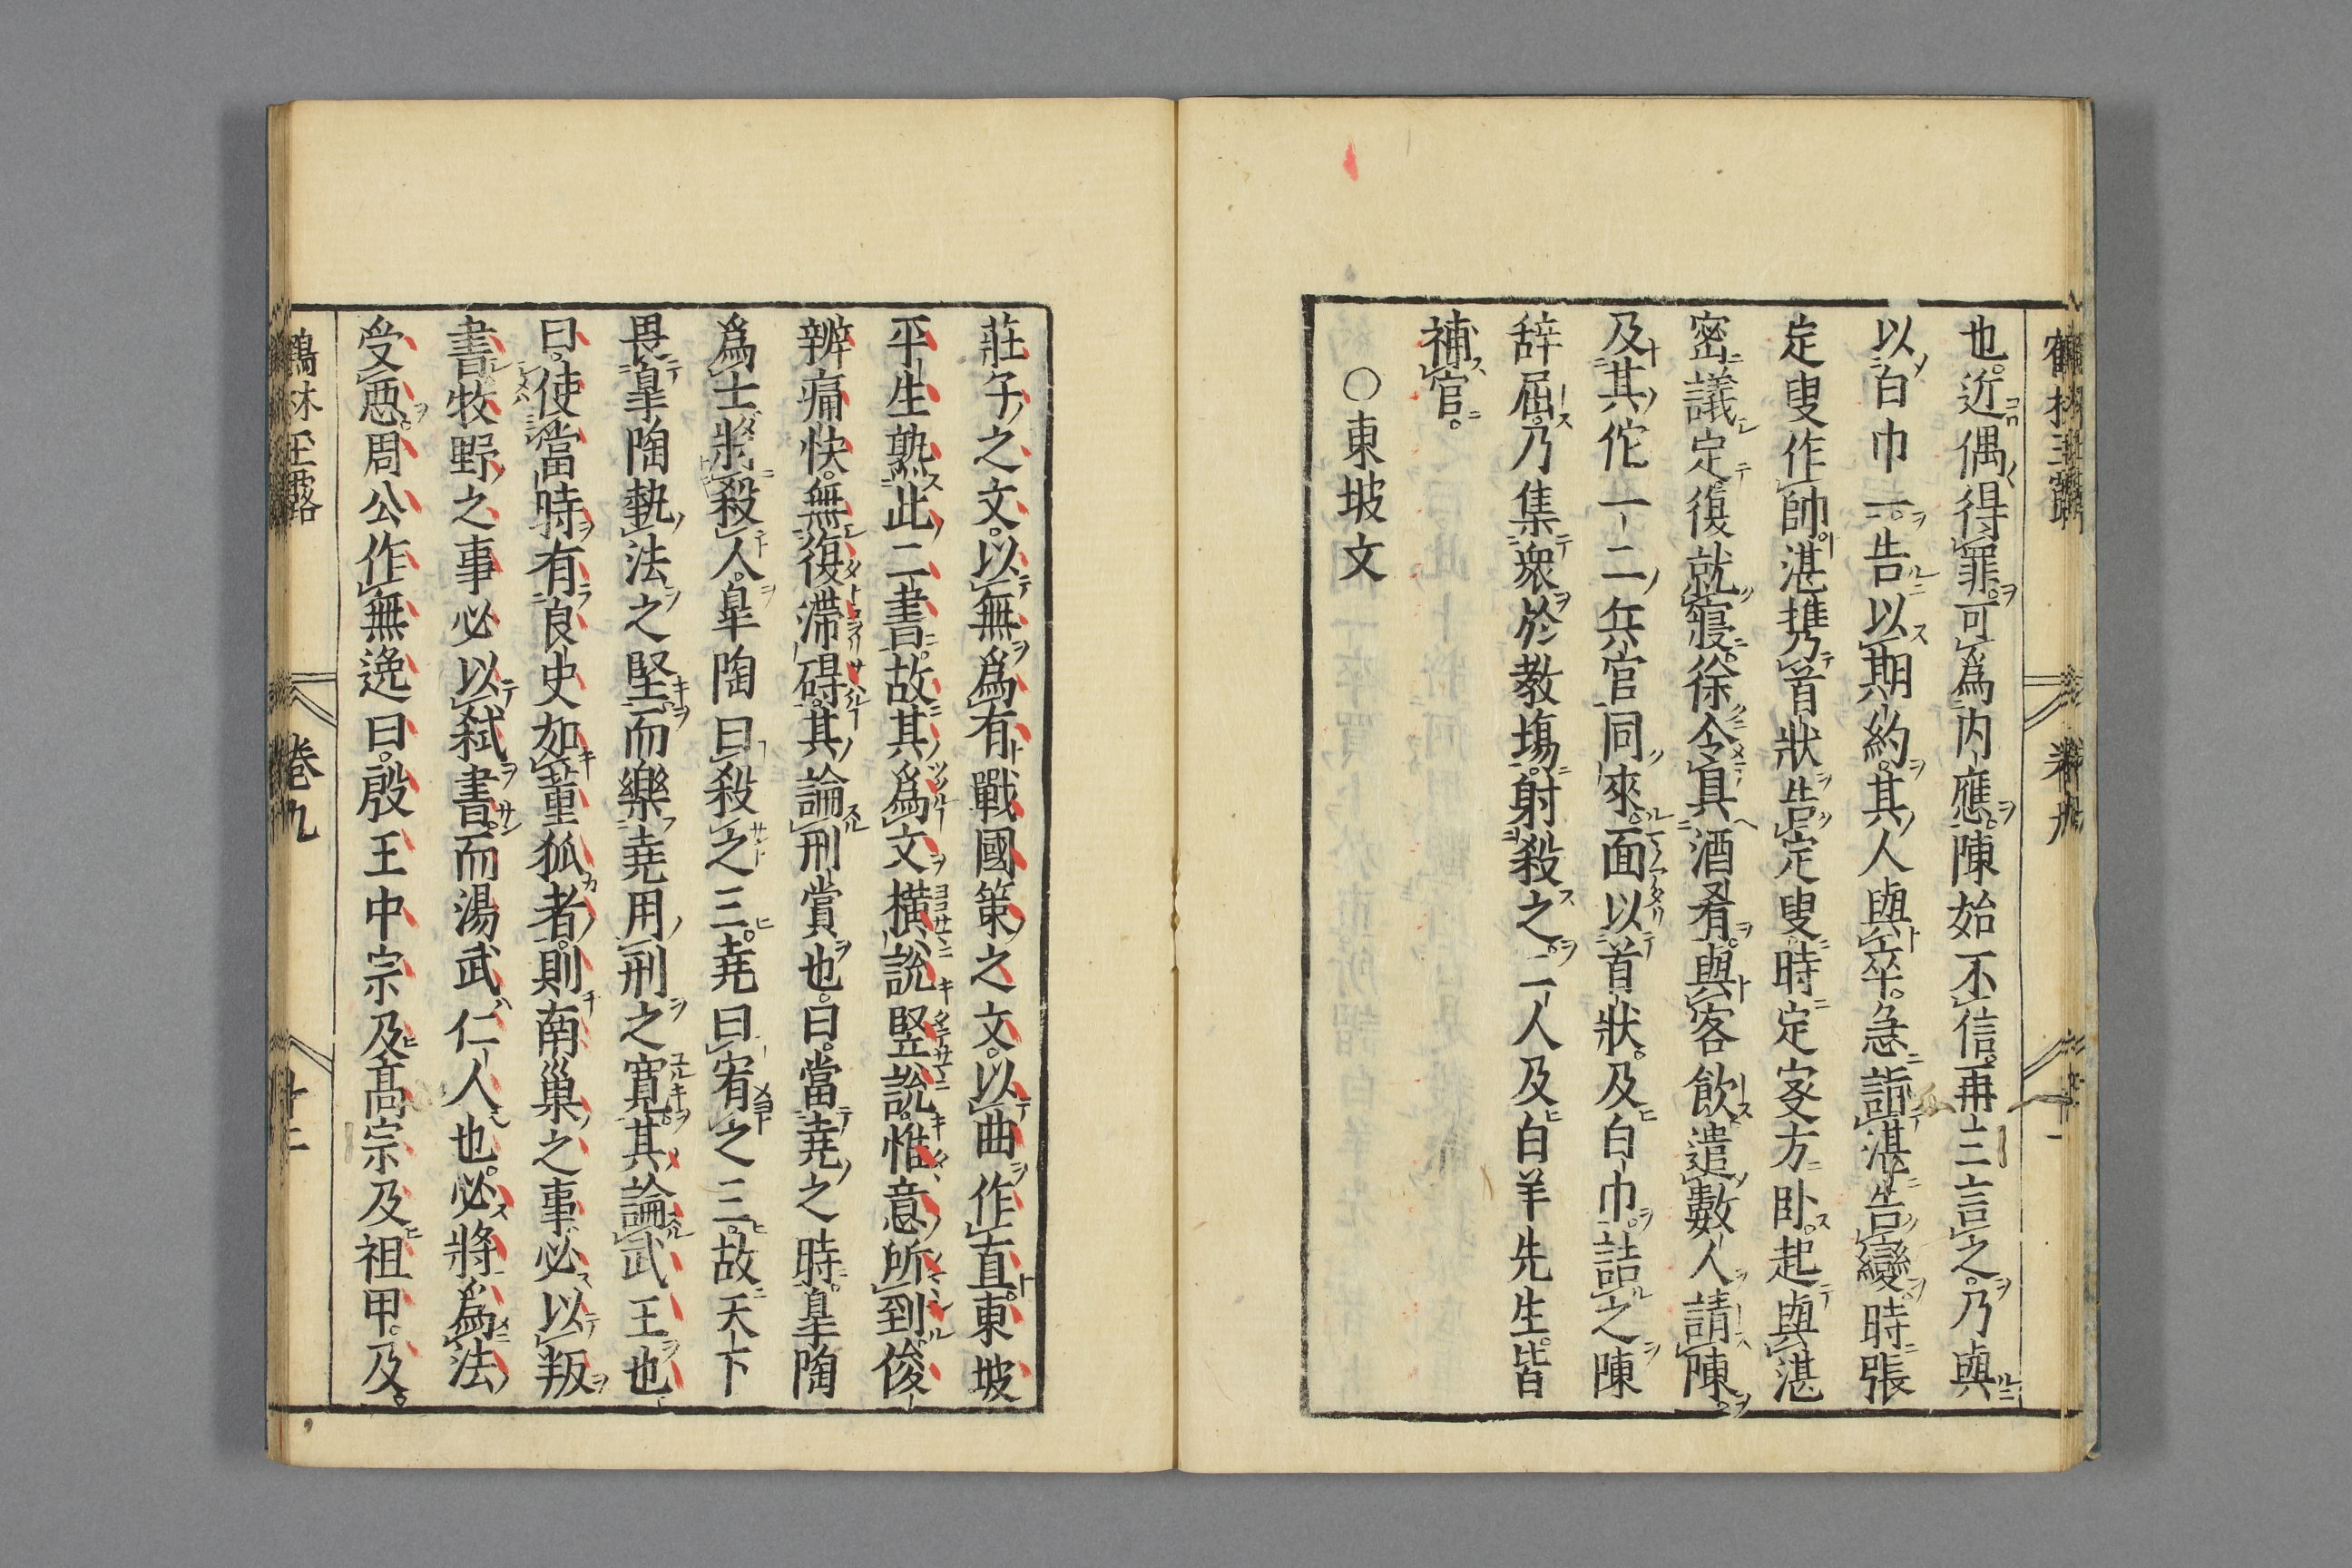 也。近偶得罪。可為内應。陳始不信。再三言之。乃與
以白巾一。告以期約。其人與卒。急詣湛告變。時張
定叟作帥。湛携首狀告定叟。時定叟方卧。起與湛
密議定。復就寢。徐令具酒肴。與客飲。遣數人請陳
及其佗一二兵官同來。面以首狀。及白巾。詰之。陳
辞屈。乃集衆於教場。射殺之。二人及白羊先生。皆
補官。
○東坡文
莊子之文。以無為有。戰國策之文。以曲作直。東坡
平生熟此二書。故其為文。橫說竪說。惟意所到。俊
辨痛快。無復滯碍。其論刑賞也。曰。當堯之時。皐陶
為士。將殺人。皐陶曰殺之三。堯曰宥之三。故天下
畏皐陶執法之堅。而樂堯用刑之寬。其論武王也
曰。使當時有良史如董狐者。則南巢之事。必以叛
書。牧野之事必以弑書。而湯武仁人也。必將為法
受惡。周公作無逸曰。殷王中宗。及高宗。及祖甲。及
鶴林玉露
卷九
十二